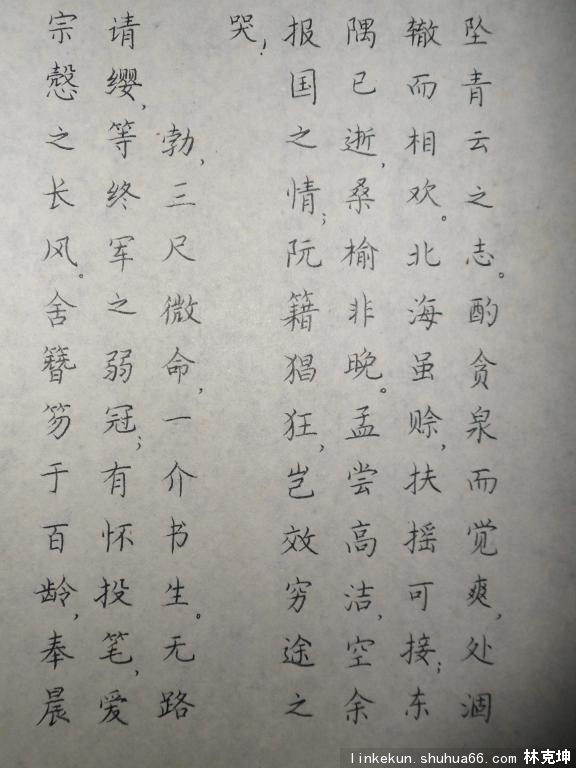 坠青云之志。酌贪泉而觉爽，处涸
辙而相欢。北海虽赊，扶摇可接；东
隅已逝，桑榆非晚。孟尝高洁，空余
报国之情；阮籍猖狂，岂效穷途之
哭！
勃，三尺微命，一介书生。无路
请缨，等终军之弱冠；有怀投笔，爱
宗慤之长风。舍簪笏于百龄，奉晨
linkekun.shuhua66.com 林克坤